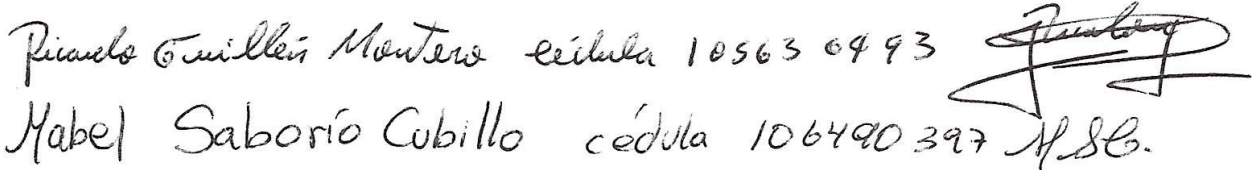 Ricardo Guillén Montero cédula 105630493
Mabel Saborío Cubillo cédula 106490397 MSC.